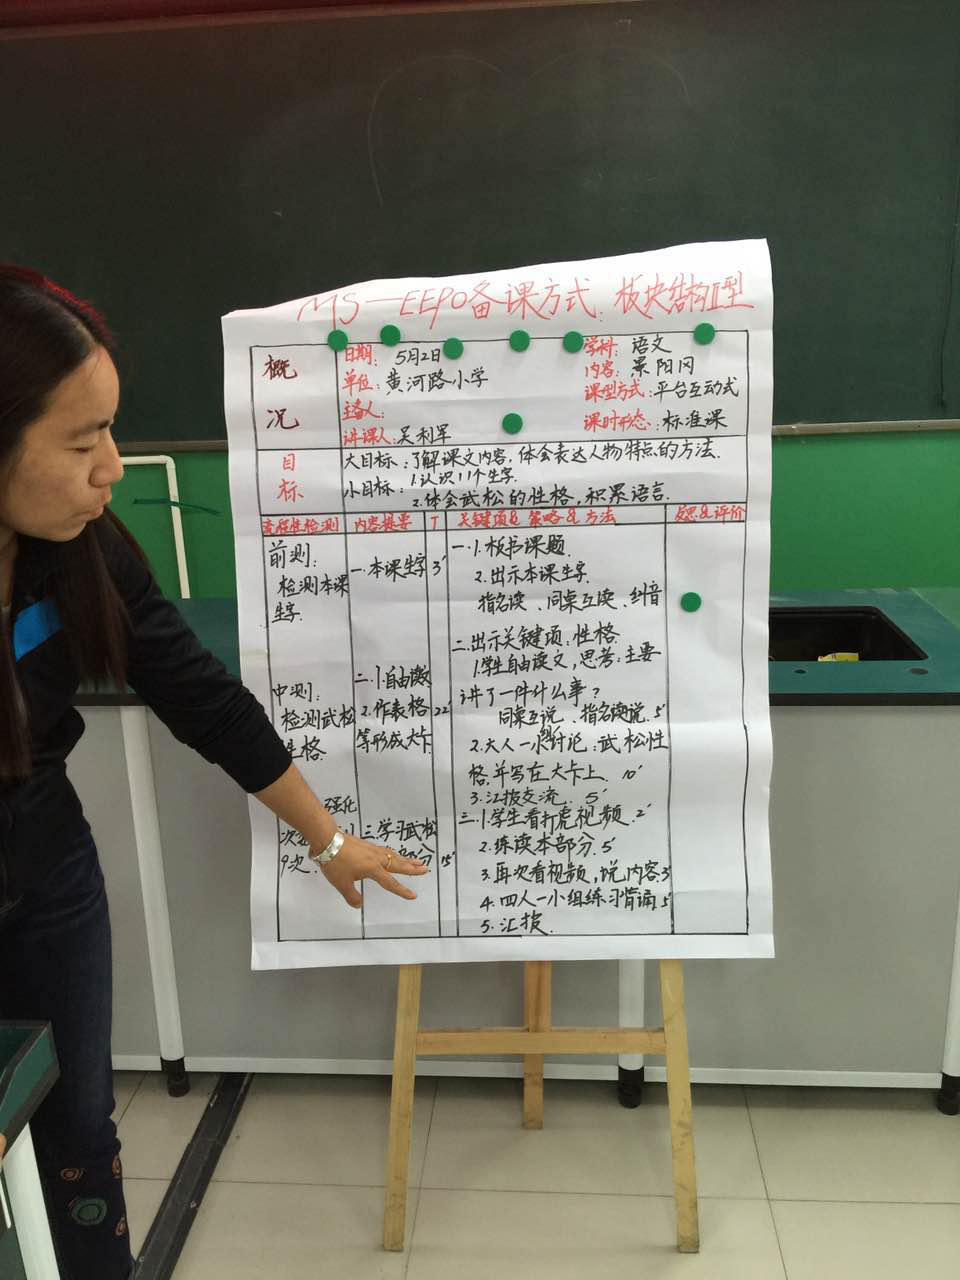 MS—EEPO备课方式:板块结构Ⅱ型
概况
日期: 5月2日
单位: 黄河路小学
主备人:
讲课人: 吴利军
学科: 语文
内容: 景阳冈
课型方式: 平台互动式
课时形态: 标准课
目标
大目标:了解课文内容,体会表达人物特点的方法.
小目标: 1.认识11个生字.
2.体会武松的性格,积累语言.
流程性检测 内容提要 T 关键项& 策略& 方法 反思&评价
前测:
检测本课
生字.
一.本课生字 3'
一.1.板书课题.
2.出示本课生字.
指名读、同桌互读、纠音
中测:
检测武松
性格.
二.1.自由读
2.作表格
等形成大卡
22'
二.出示关键项:性格
1.学生自由读文,思考:主要
讲了一件什么事?
同桌互说、指名说 5'
2.大人一小组讨论:武松性
格,并写在大卡上. 10'
3.汇报交流. 5'
强化
次
9次.
三.学习武松
部分.
15'
三.1.学生看打虎视频.2'
2.练读本部分.5'
3.再次看视频,说内容3'
4.四人一小组练习背诵5'
5.汇报.